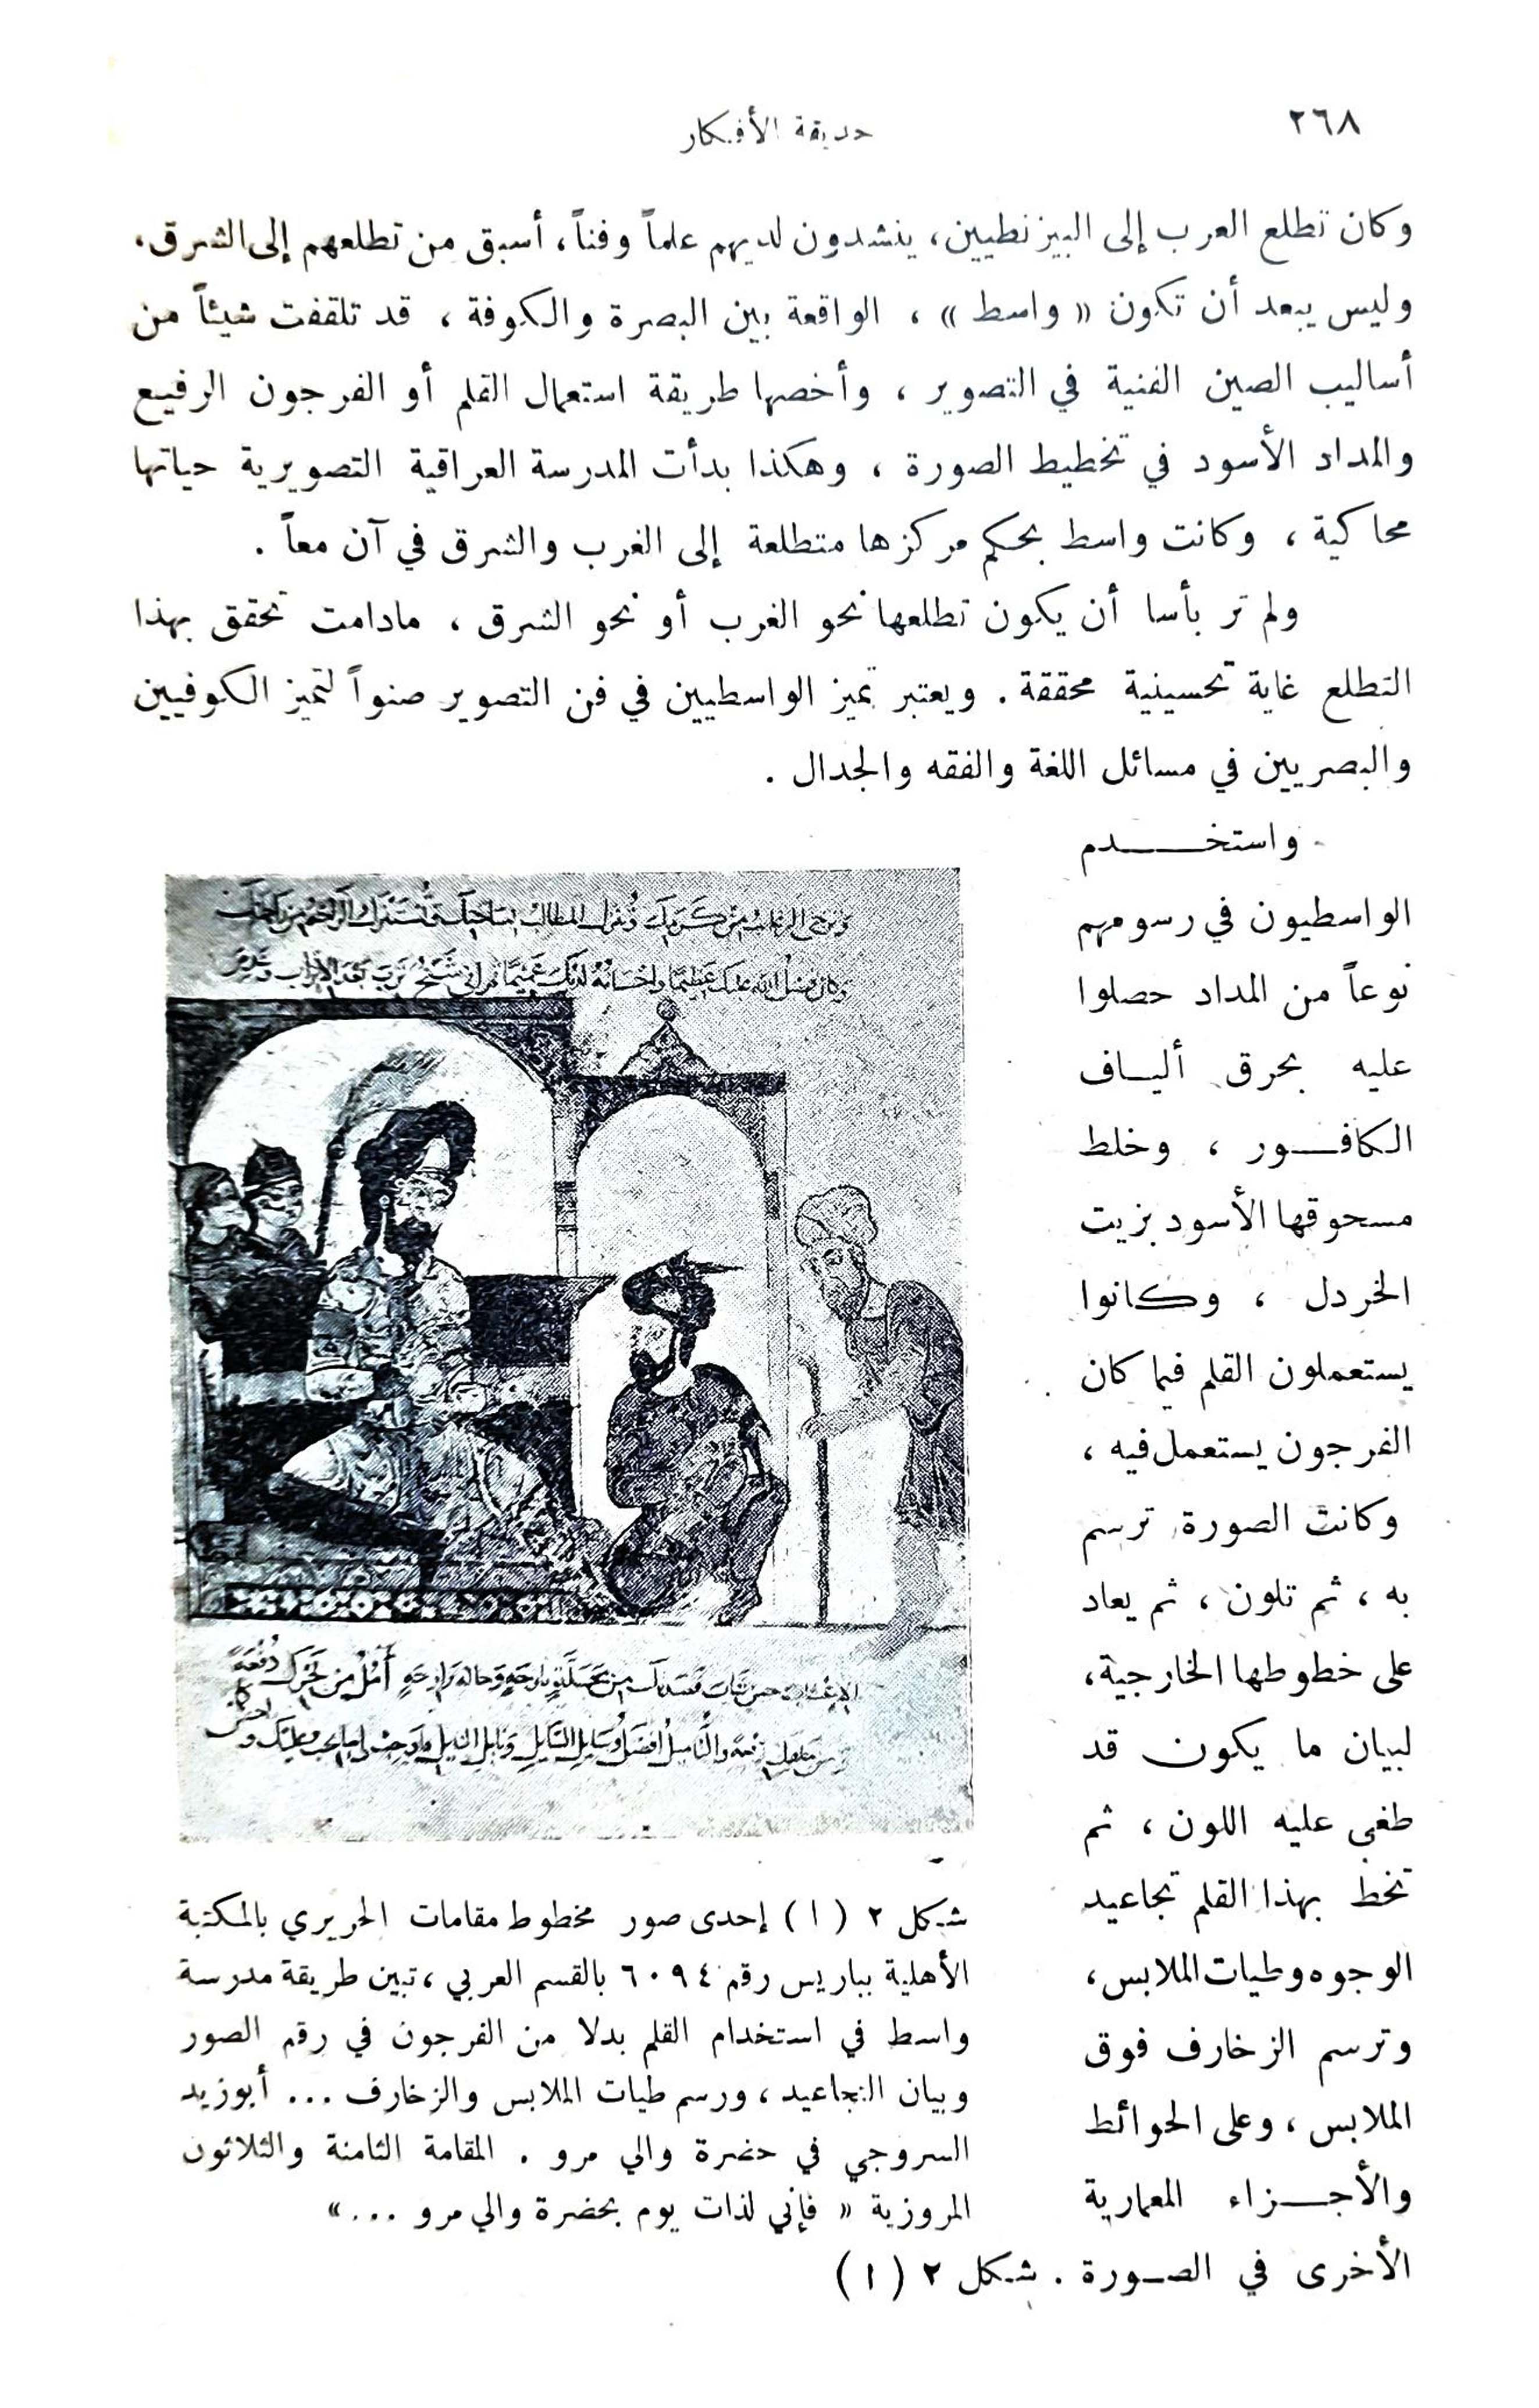 ٢٦٨
حديقة الأفكار
وكان تطلع العرب إلى البيزنطيين، ينشدون لديهم علماً وفناً، أسبق من تطلعهم إلى الشرق،
وليس يبعد أن تكون « واسط » ، الواقعة بين البصرة والكوفة ، قد تلقفت شيئاً من
أساليب الصين الفنية في التصوير ، وأخصها طريقة استعمال القلم أو الفرجون الرفيع
والمداد الأسود في تخطيط الصورة ، وهكذا بدأت المدرسة العراقية التصويرية حياتها
محاكية ، وكانت واسط بحكم مركزها متطلعة إلى الغرب والشرق في آن معاً .
ولم تر بأسا أن يكون تطلعها نحو الغرب أو نحو الشرق ، مادامت تحقق بهذا
التطلع غاية تحسينية محققة . ويعتبر تميز الواسطيين في فن التصوير صنواً لتميز الكوفيين
والبصريين في مسائل اللغة والفقه والجدال .
واستخدم
الواسطيون في رسومهم
نوعاً من المداد حصلوا
عليه بحرق ألياف
الكافور ، وخلط
مسحوقها الأسود بزيت
الخردل ، وكانوا
يستعملون القلم فيما كان
الفرجون يستعمل فيه ،
وكانت الصورة ترسم
به ، ثم تلون ، ثم يعاد
على خطوطها الخارجية،
لبيان ما يكون قد
طغى عليه اللون ، ثم
تخط بهذا القلم تجاعيد
الوجوه وطيات الملابس،
وترسم الزخارف فوق
الملابس ، وعلى الحوائط
والأجزاء المعمارية
الأخرى في الصورة . شكل ٢ ( ا )
شكل ٢ ( ا ) إحدى صور مخطوط مقامات الحريري بالمكتبة
الأهلية بباريس رقم ٦٠٩٤ بالقسم العربي ، تبين طريقة مدرسة
واسط في استخدام القلم بدلا من الفرجون في رقم الصور
وبيان التجاعيد ، ورسم طيات الملابس والزخارف ... أبوزيد
السروجي في حضرة والي مرو . المقامة الثامنة والثلاثون
المروزية « فإني لذات يوم بحضرة والي مرو ... »